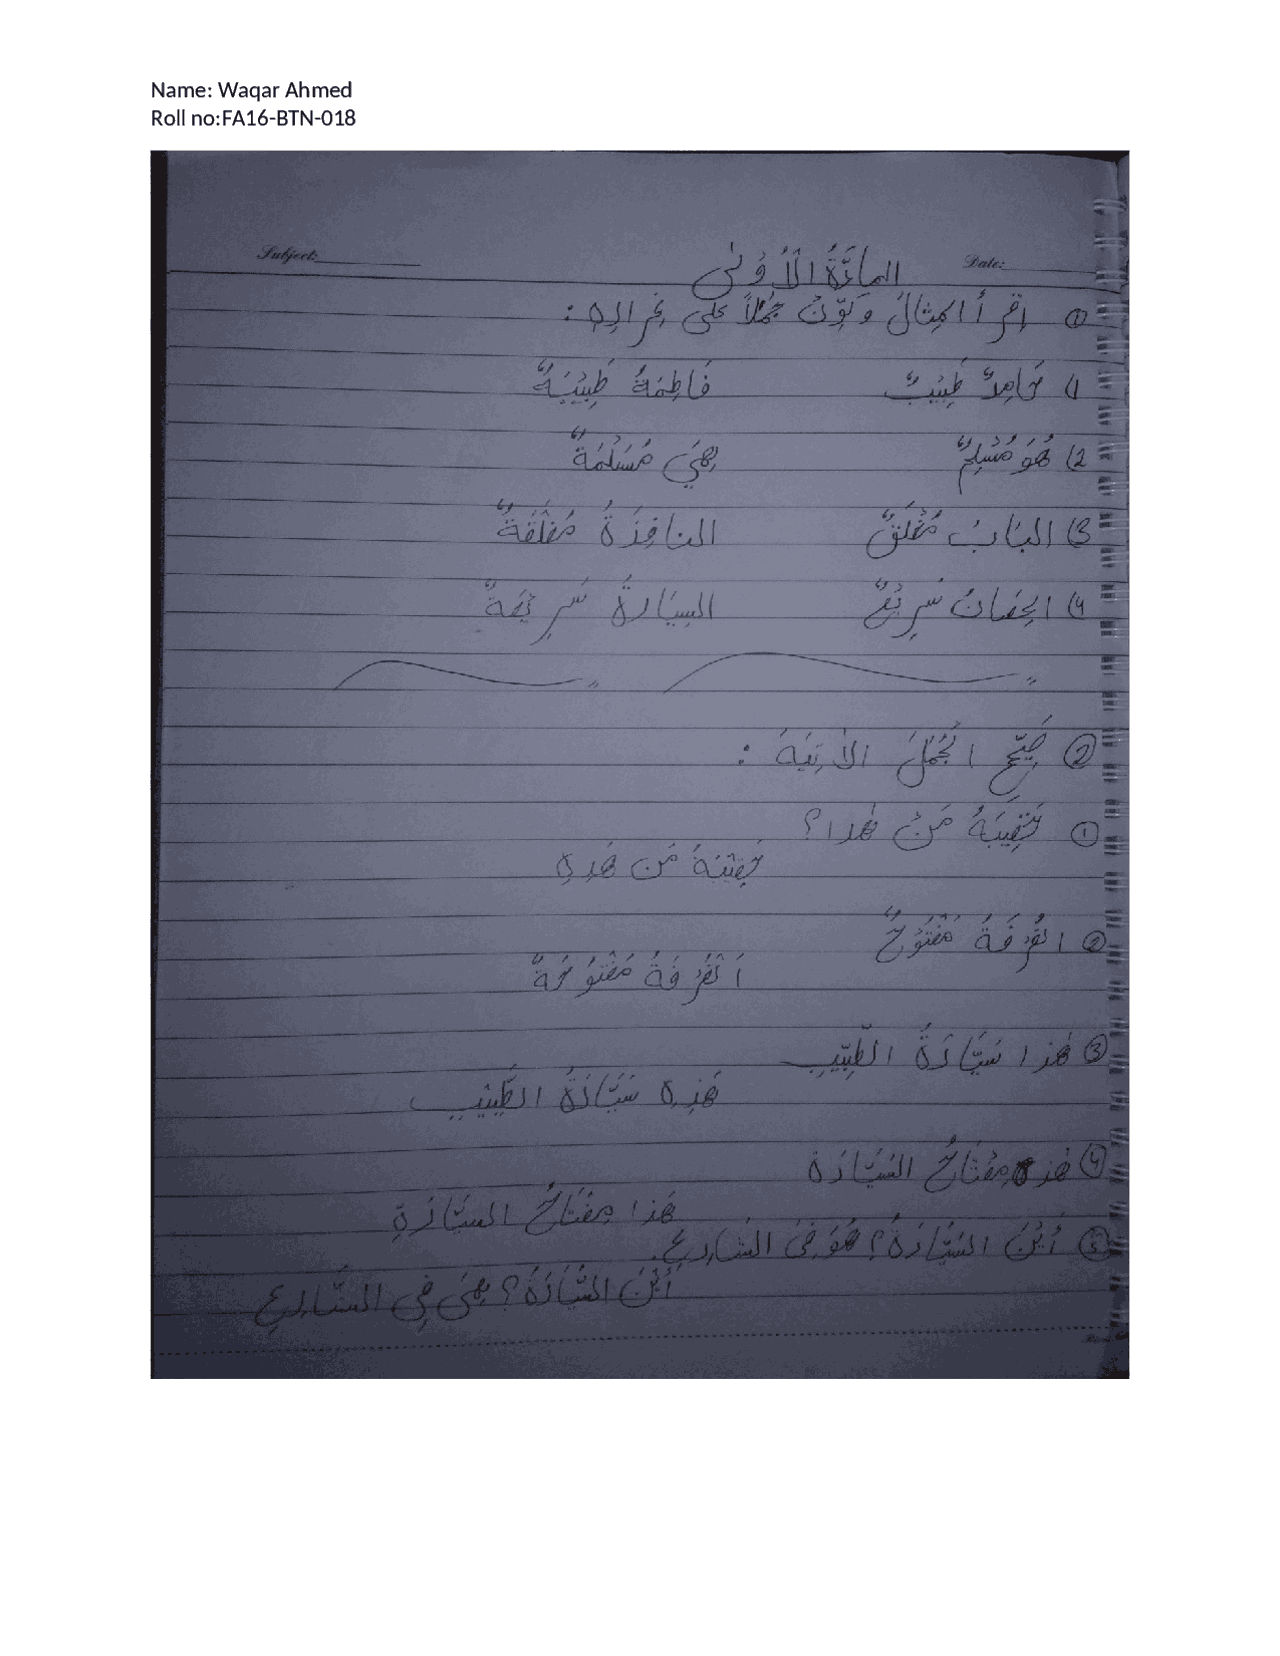 Name: Waqar Ahmed
Roll no:FA16-BTN-018
Subject: Date:
المادَّةُ الْأُوْلٰى
① اقرأ المِثالَ وَكَوِّنْ جُمَلاً على غِرارِهِ :
1) حَامِدٌ طَبِيْبٌ فَاطِمَةُ طَبِيْبَةٌ
2) هُوَ مُسْلِمٌ هِيَ مُسْلِمَةٌ
3) البَابُ مُغْلَقٌ النافِذَةُ مُغْلَقَةٌ
4) الحِصَانُ سَرِيْعٌ السيَّارةُ سَرِيْعَةٌ
② صَحِّحِ الْجُمَلَ الآتِيَةَ :
① مَنْ هٰذا؟
مَن هَذِهِ
② الغُرْفَةُ مَفْتُوْحٌ
اَلْغُرْفَةُ مَفْتُوْحَةٌ
③ هٰذا سَيَّارَةُ الطَّبِيْبِ
هَذِهِ سَيَّارَةُ الطَّبِيْبِ
④ هٰذه مِفْتَاحُ السَّيَّارَة
هَذا مِفْتَاحُ السيَّارَةِ
⑤ أَيْنَ السَّيَّارَةُ؟ هُوَ فِىْ الشَارِعِ.
أَيْنَ السَّيَّارَةُ؟ هِيَ فِي الشَّارِعِ